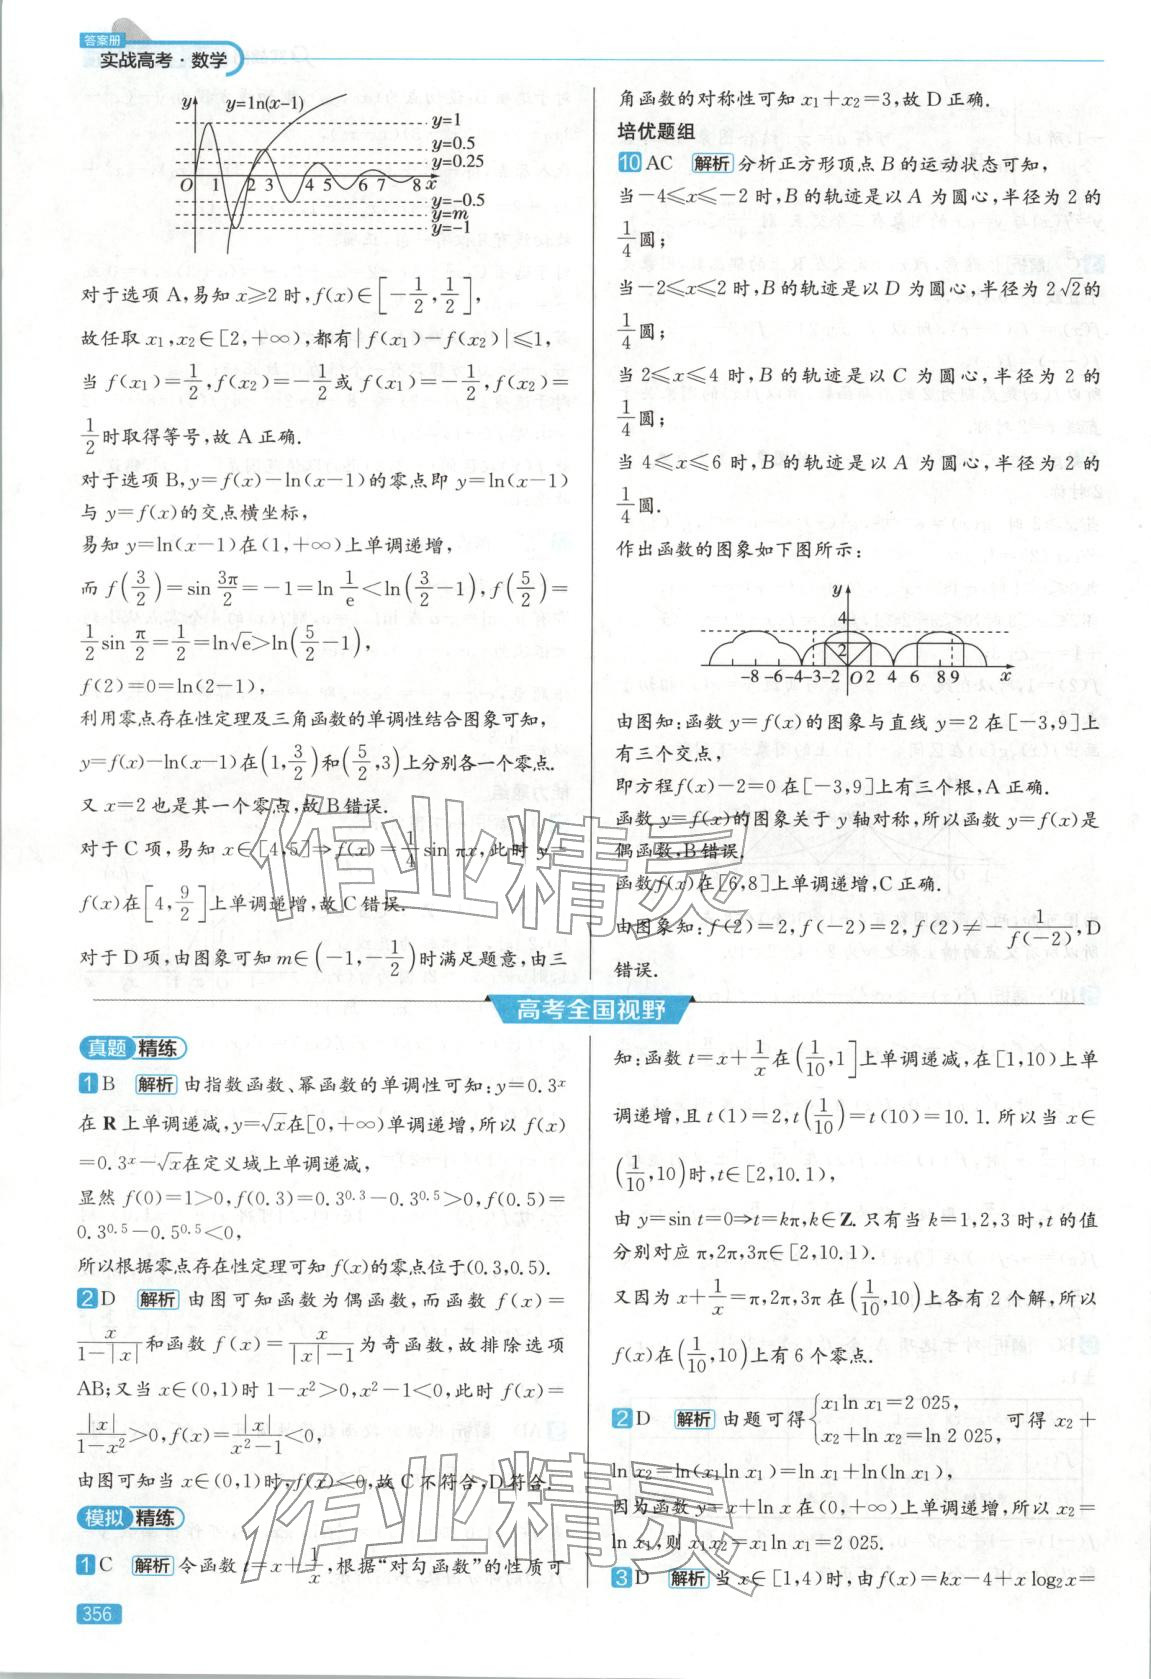 答案册
实战高考·数学
y
y=ln(x-1)
y=1
y=0.5
y=0.25
O 1 2 3 4 5 6 7 8 x
y=-0.5
y=m
y=-1
对于选项 A,易知 x≥2 时,f(x)∈[-1/2,1/2],
故任取 x₁,x₂∈[2,+∞),都有|f(x₁)-f(x₂)|≤1,
当 f(x₁)=1/2,f(x₂)=-1/2或 f(x₁)=-1/2,f(x₂)=
1/2时取得等号,故 A 正确.
对于选项 B,y=f(x)-ln(x-1)的零点即 y=ln(x-1)
与 y=f(x)的交点横坐标,
易知 y=ln(x-1)在(1,+∞)上单调递增,
而 f(3/2)=sin 3π/2=-1=ln 1/e<ln(3/2-1),f(5/2)=
1/2 sin π/2=1/2=ln√e>ln(5/2-1),
f(2)=0=ln(2-1),
利用零点存在性定理及三角函数的单调性结合图象可知,
y=f(x)-ln(x-1)在(1,3/2)和(5/2,3)上分别各一个零点.
又 x=2 也是其一个零点,故 B 错误.
对于 C 项,易知 x∈[4,5]⇒f(x)=1/4 sin πx,此时 y=
f(x)在[4,9/2]上单调递增,故 C 错误.
对于 D 项,由图象可知 m∈(-1,-1/2)时满足题意,由三
角函数的对称性可知 x₁+x₂=3,故 D 正确.
培优题组
10 AC 解析 分析正方形顶点 B 的运动状态可知,
当-4≤x≤-2 时,B 的轨迹是以 A 为圆心,半径为 2 的
1/4圆;
当-2≤x≤2 时,B 的轨迹是以 D 为圆心,半径为 2√2的
1/4圆;
当 2≤x≤4 时,B 的轨迹是以 C 为圆心,半径为 2 的
1/4圆;
当 4≤x≤6 时,B 的轨迹是以 A 为圆心,半径为 2 的
1/4圆.
作出函数的图象如下图所示:
y
4
2
-8 -6 -4-3-2 O 2 4 6 8 9 x
由图知:函数 y=f(x)的图象与直线 y=2 在[-3,9]上
有三个交点,
即方程f(x)-2=0 在[-3,9]上有三个根,A 正确.
函数 y=f(x)的图象关于 y 轴对称,所以函数 y=f(x)是
偶函数,B 错误.
函数f(x)在[6,8]上单调递增,C 正确.
由图象知:f(2)=2,f(-2)=2,f(2)≠-1/f(-2),D
错误.
高考全国视野
真题 精练
1 B 解析 由指数函数、幂函数的单调性可知:y=0.3ˣ
在 R 上单调递减,y=√x在[0,+∞)单调递增,所以 f(x)
=0.3ˣ-√x在定义域上单调递减,
显然 f(0)=1>0,f(0.3)=0.3^0.3-0.3^0.5>0,f(0.5)=
0.3^0.5-0.5^0.5<0,
所以根据零点存在性定理可知 f(x)的零点位于(0.3,0.5).
2 D 解析 由图可知函数为偶函数,而函数 f(x)=
x/(1-|x|)和函数 f(x)=x/(|x|-1)为奇函数,故排除选项
AB;又当 x∈(0,1)时 1-x²>0,x²-1<0,此时 f(x)=
|x|/(1-x²)>0,f(x)=|x|/(x²-1)<0,
由图可知当 x∈(0,1)时,f(x)<0,故 C 不符合,D 符合.
模拟 精练
1 C 解析 令函数 t=x+1/x,根据“对勾函数”的性质可
知:函数 t=x+1/x在(1/10,1]上单调递减,在[1,10)上单
调递增,且 t(1)=2,t(1/10)=t(10)=10.1.所以当 x∈
(1/10,10)时,t∈[2,10.1),
由 y=sin t=0⇒t=kπ,k∈Z.只有当 k=1,2,3 时,t 的值
分别对应 π,2π,3π∈[2,10.1).
又因为 x+1/x=π,2π,3π 在(1/10,10)上各有 2 个解,所以
f(x)在(1/10,10)上有 6 个零点.
2 D 解析 由题可得{x₁ln x₁=2 025, x₂+ln x₂=ln 2 025, 可得 x₂+
ln x₂=ln(x₁ln x₁)=ln x₁+ln(ln x₁),
因为函数 y=x+ln x 在(0,+∞)上单调递增,所以 x₂=
ln x₁,则 x₁x₂=x₁ln x₁=2 025.
3 D 解析 当 x∈[1,4)时,由f(x)=kx-4+x log₂x=
356
作业精灵
作业精灵